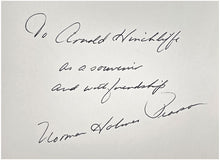 To Arnold Hinchliffe
as a souvenir
and with friendship
Norman Holmes Pearson